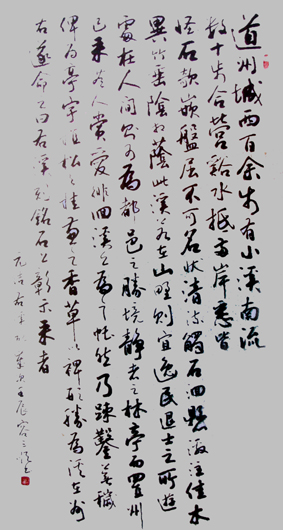 道州城西百余步有小溪南流
数十步合营谿水抵两岸悉皆
怪石欹嵌盘屈不可名状清流触石洄悬激注佳木
異竹垂陰相蔭此溪若在山野则宜逸民退士之所遊
處在人间则可为都邑之勝境静者之林亭而置州
已来无人赏爱徘徊溪上为之怅然乃疎鑿芜穢
俾为亭宇植松与桂兼之香草以裨形勝为溪在州
右遂命之曰右溪刻銘石上彰示来者
元结右溪记 壬辰